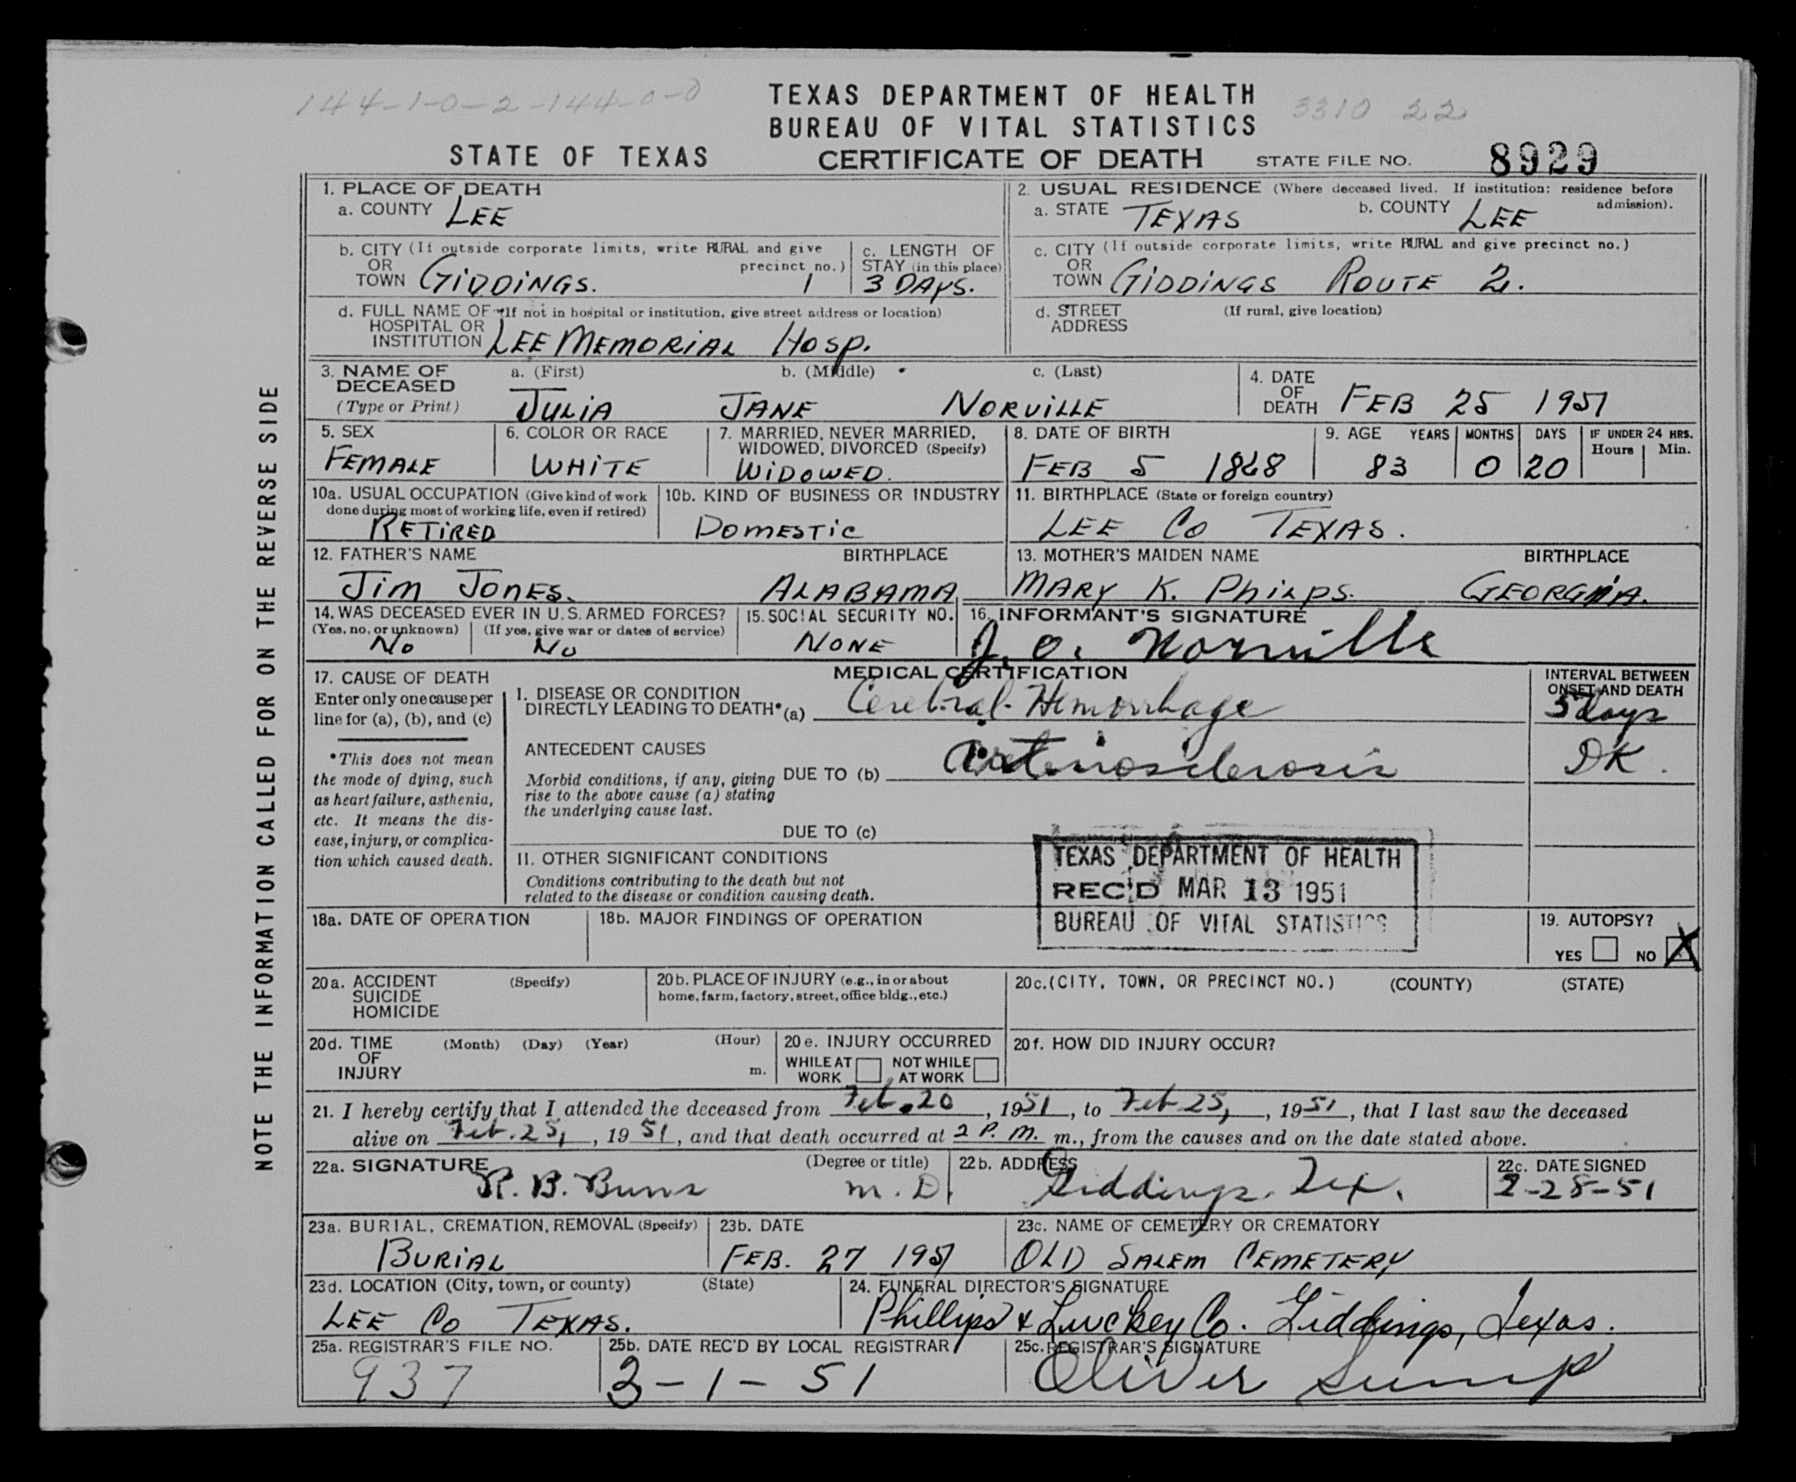 144-1-0-2-144-0-0
TEXAS DEPARTMENT OF HEALTH
3310 22
BUREAU OF VITAL STATISTICS
STATE OF TEXAS CERTIFICATE OF DEATH STATE FILE NO. 8929
NOTE THE INFORMATION CALLED FOR ON THE REVERSE SIDE
1. PLACE OF DEATH
a. COUNTY LEE
2. USUAL RESIDENCE (Where deceased lived. If institution: residence before admission).
a. STATE TEXAS b. COUNTY LEE
b. CITY (If outside corporate limits, write RURAL and give precinct no.)
OR
TOWN GIDDINGS. 1
c. LENGTH OF
STAY (in this place)
3 DAYS.
c. CITY (If outside corporate limits, write RURAL and give precinct no.)
OR
TOWN GIDDINGS ROUTE 2.
d. FULL NAME OF (If not in hospital or institution, give street address or location)
HOSPITAL OR
INSTITUTION LEE MEMORIAL HOSP.
d. STREET (If rural, give location)
ADDRESS
3. NAME OF a. (First) b. (Middle) c. (Last)
DECEASED
(Type or Print) JULIA JANE NORVILLE
4. DATE
OF
DEATH FEB 25 1951
5. SEX
FEMALE
6. COLOR OR RACE
WHITE
7. MARRIED, NEVER MARRIED,
WIDOWED, DIVORCED (Specify)
WIDOWED.
8. DATE OF BIRTH
FEB 5 1868
9. AGE YEARS MONTHS DAYS IF UNDER 24 HRS.
Hours Min.
83 0 20
10a. USUAL OCCUPATION (Give kind of work
done during most of working life, even if retired)
RETIRED
10b. KIND OF BUSINESS OR INDUSTRY
DOMESTIC
11. BIRTHPLACE (State or foreign country)
LEE CO TEXAS.
12. FATHER'S NAME BIRTHPLACE
JIM JONES. ALABAMA
13. MOTHER'S MAIDEN NAME BIRTHPLACE
MARY K. PHILPS. GEORGIA.
14. WAS DECEASED EVER IN U.S. ARMED FORCES?
(Yes, no, or unknown) (If yes, give war or dates of service)
No No
15. SOCIAL SECURITY NO.
NONE
16. INFORMANT'S SIGNATURE
J. O. Norville
17. CAUSE OF DEATH
Enter only one cause per
line for (a), (b), and (c)
*This does not mean
the mode of dying, such
as heart failure, asthenia,
etc. It means the dis-
ease, injury, or complica-
tion which caused death.
MEDICAL CERTIFICATION
INTERVAL BETWEEN
ONSET AND DEATH
I. DISEASE OR CONDITION
DIRECTLY LEADING TO DEATH* (a) Cerebral Hemorrhage 5 days
ANTECEDENT CAUSES
Morbid conditions, if any, giving
rise to the above cause (a) stating
the underlying cause last.
DUE TO (b) Arteriosclerosis DK.
DUE TO (c)
II. OTHER SIGNIFICANT CONDITIONS
Conditions contributing to the death but not
related to the disease or condition causing death.
TEXAS DEPARTMENT OF HEALTH
REC'D MAR 13 1951
BUREAU OF VITAL STATISTICS
18a. DATE OF OPERATION
18b. MAJOR FINDINGS OF OPERATION
19. AUTOPSY?
YES NO X
20a. ACCIDENT (Specify)
SUICIDE
HOMICIDE
20b. PLACE OF INJURY (e.g., in or about
home, farm, factory, street, office bldg., etc.)
20c. (CITY, TOWN, OR PRECINCT NO.) (COUNTY) (STATE)
20d. TIME (Month) (Day) (Year) (Hour)
OF
INJURY m.
20e. INJURY OCCURRED
WHILE AT WORK NOT WHILE AT WORK
20f. HOW DID INJURY OCCUR?
21. I hereby certify that I attended the deceased from Feb. 20, 1951, to Feb 25, 1951, that I last saw the deceased
alive on Feb. 25, 1951, and that death occurred at 2 P. M. m., from the causes and on the date stated above.
22a. SIGNATURE (Degree or title)
R. B. Burns M.D.
22b. ADDRESS
Giddings, Tex.
22c. DATE SIGNED
2-28-51
23a. BURIAL, CREMATION, REMOVAL (Specify)
BURIAL
23b. DATE
FEB. 27 1951
23c. NAME OF CEMETERY OR CREMATORY
OLD SALEM CEMETERY
23d. LOCATION (City, town, or county) (State)
LEE CO TEXAS.
24. FUNERAL DIRECTOR'S SIGNATURE
Phillips & Luckey Co. Giddings, Texas.
25a. REGISTRAR'S FILE NO.
937
25b. DATE REC'D BY LOCAL REGISTRAR
3-1-51
25c. REGISTRAR'S SIGNATURE
Oliver